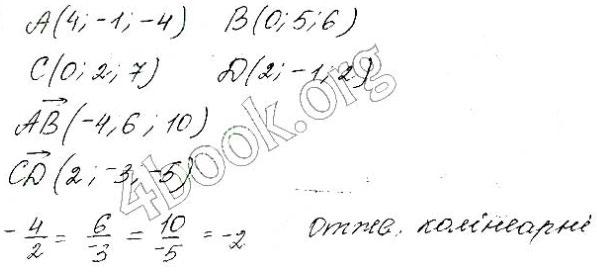 A(4; -1; -4) B(0; 5; 6)
C(0; 2; 7) D(2; -1; 2)
AB(-4, 6; 10)
CD(2; -3; -5)
-4/2 = 6/-3 = 10/-5 = -2 Отже, колінеарні
4book.org